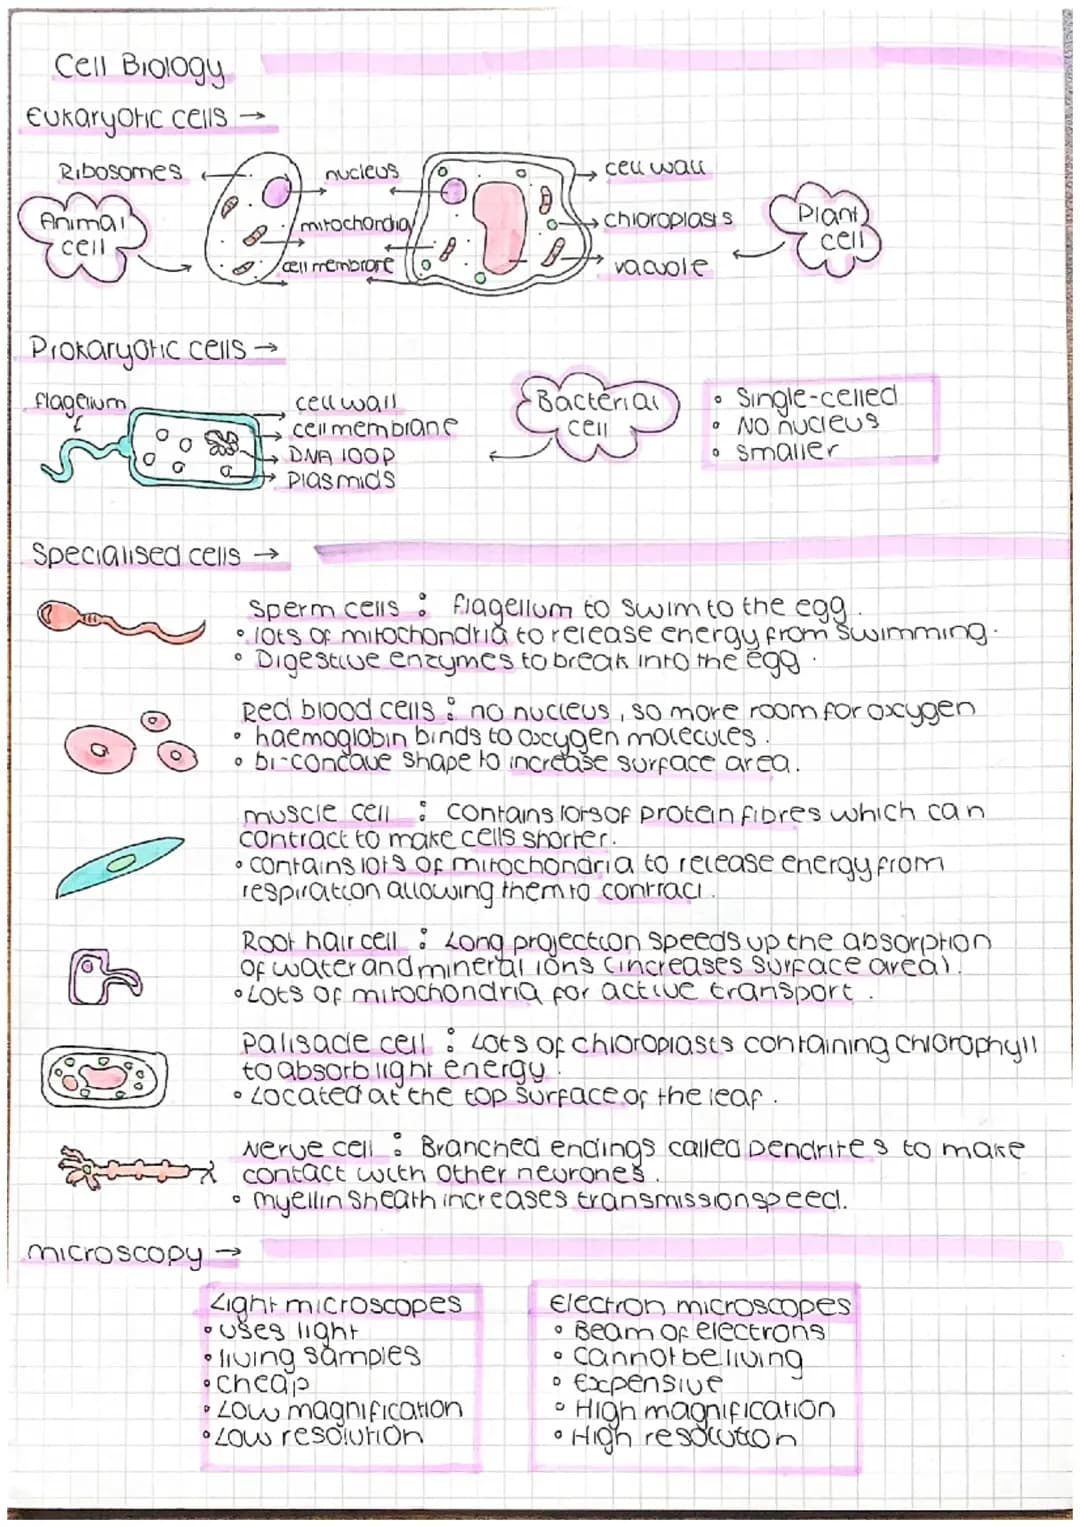 Cell Biology
Eukaryotic cells →
Ribosomes
nucleus
cell wall
Animal
cell
mitochondia
chloroplasts
Plant
cell
cell membrane
vacuole
Prokaryotic cells →
flagellum
cell wall
cell membrane
DNA loop
Plasmids
Bacterial
cell
• Single-celled
• No nucleus
• smaller
Specialised cells →
Sperm cells : flagellum to swim to the egg.
• lots of mitochondria to release energy from swimming.
• Digestive enzymes to break into the egg.
Red blood cells : no nucleus, so more room for oxygen
• haemoglobin binds to oxygen molecules.
• bi-concave shape to increase surface area.
muscle cell : contains lots of protein fibres which can
contract to make cells shorter.
• contains lots of mitochondria to release energy from
respiration allowing them to contract.
Root hair cell : Long projection speeds up the absorption
of water and mineral ions (increases surface area).
• Lots of mitochondria for active transport.
Palisade cell : Lots of chloroplasts containing chlorophyll
to absorb light energy.
• Located at the top surface of the leaf.
Nerve cell : Branched endings called Dendrites to make
contact with other neurones.
• myellin sheath increases transmission speed.
microscopy →
Light microscopes
• uses light
• living samples
• cheap
• Low magnification
• Low resolution
Electron microscopes
• Beam of electrons
• cannot be living
• Expensive
• High magnification
• High resolution